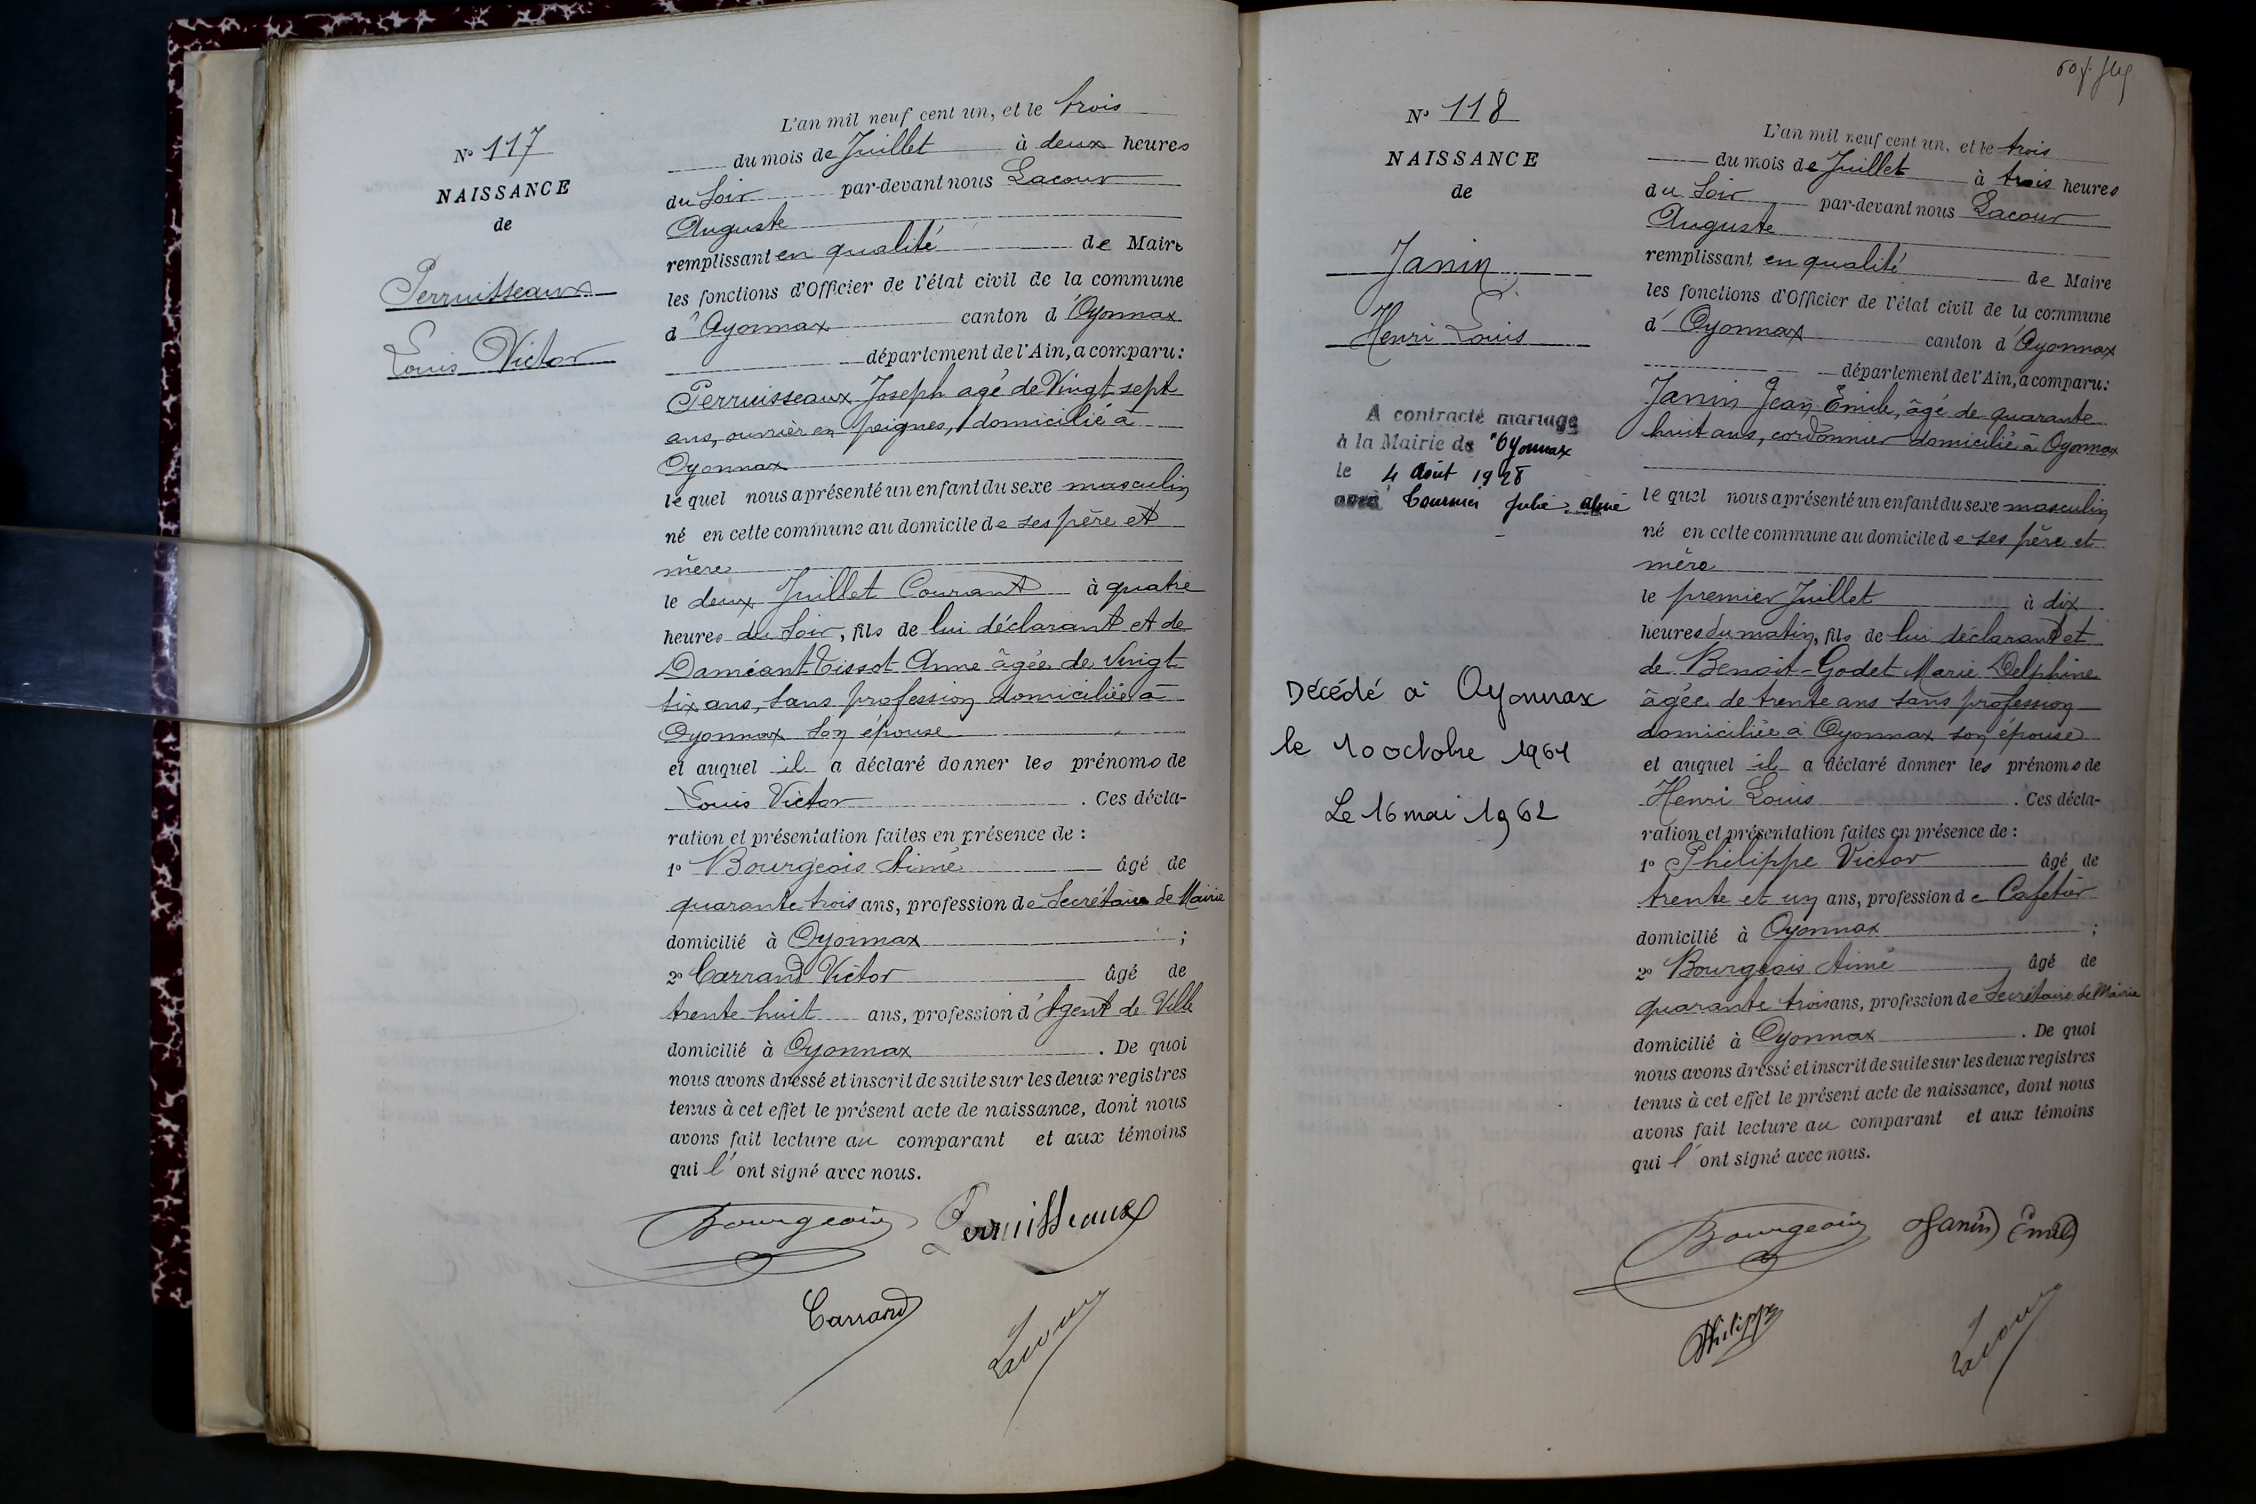 N° 117
NAISSANCE
de
Perruisseaux
Louis Victor
L'an mil neuf cent un, et le trois
du mois de Juillet à deux heures
du soir par-devant nous Lacour
Auguste
remplissant en qualité de Maire
les fonctions d'Officier de l'état civil de la commune
d'Oyonnax canton d'Oyonnax
département de l'Ain, a comparu:
Perruisseaux Joseph agé de Vingt sept
ans, ouvrier en peignes, domicilié à
Oyonnax
lequel nous a présenté un enfant du sexe masculin
né en cette commune au domicile de ses père et
mère
le deux Juillet Courant à quatre
heures du soir, fils de lui déclarant et de
Daméant Tissot Anne âgée de Vingt
six ans, sans profession domiciliée à
Oyonnax son épouse
et auquel il a déclaré donner les prénoms de
Louis Victor. Ces décla-
ration et présentation faites en présence de :
1° Bourgeois Aimé âgé de
quarante trois ans, profession de Secrétaire de Mairie
domicilié à Oyonnax ;
2° Carrand Victor âgé de
trente huit ans, profession d'Agent de Ville
domicilié à Oyonnax. De quoi
nous avons dressé et inscrit de suite sur les deux registres
tenus à cet effet le présent acte de naissance, dont nous
avons fait lecture au comparant et aux témoins
qui l'ont signé avec nous.
Bourgeois Perruisseaux
Carrand Lacour
N° 118
NAISSANCE
de
Janin
Henri Louis
A contracté mariage
à la Mairie de Oyonnax
le 4 Août 1928
avec Julie
Décédé à Oyonnax
le 10 octobre 1961
Le 16 mai 1962
L'an mil neuf cent un, et le trois
du mois de Juillet à trois heures
du soir par-devant nous Lacour
Auguste
remplissant en qualité de Maire
les fonctions d'Officier de l'état civil de la commune
d'Oyonnax canton d'Oyonnax
département de l'Ain, a comparu:
Janin Jean Emile, âgé de quarante
huit ans, cordonnier domicilié à Oyonnax
lequel nous a présenté un enfant du sexe masculin
né en cette commune au domicile de ses père et
mère
le premier Juillet à dix
heures du matin, fils de lui déclarant et
de Benoit-Godet Marie Delphine
âgée de trente ans sans profession
domiciliée à Oyonnax son épouse
et auquel il a déclaré donner les prénoms de
Henri Louis. Ces décla-
ration et présentation faites en présence de :
1° Philippe Victor âgé de
trente et un ans, profession de Cafetier
domicilié à Oyonnax ;
2° Bourgeois Aimé âgé de
quarante trois ans, profession de Secrétaire de Mairie
domicilié à Oyonnax. De quoi
nous avons dressé et inscrit de suite sur les deux registres
tenus à cet effet le présent acte de naissance, dont nous
avons fait lecture au comparant et aux témoins
qui l'ont signé avec nous.
Bourgeois Janin Emile
Philippe Lacour